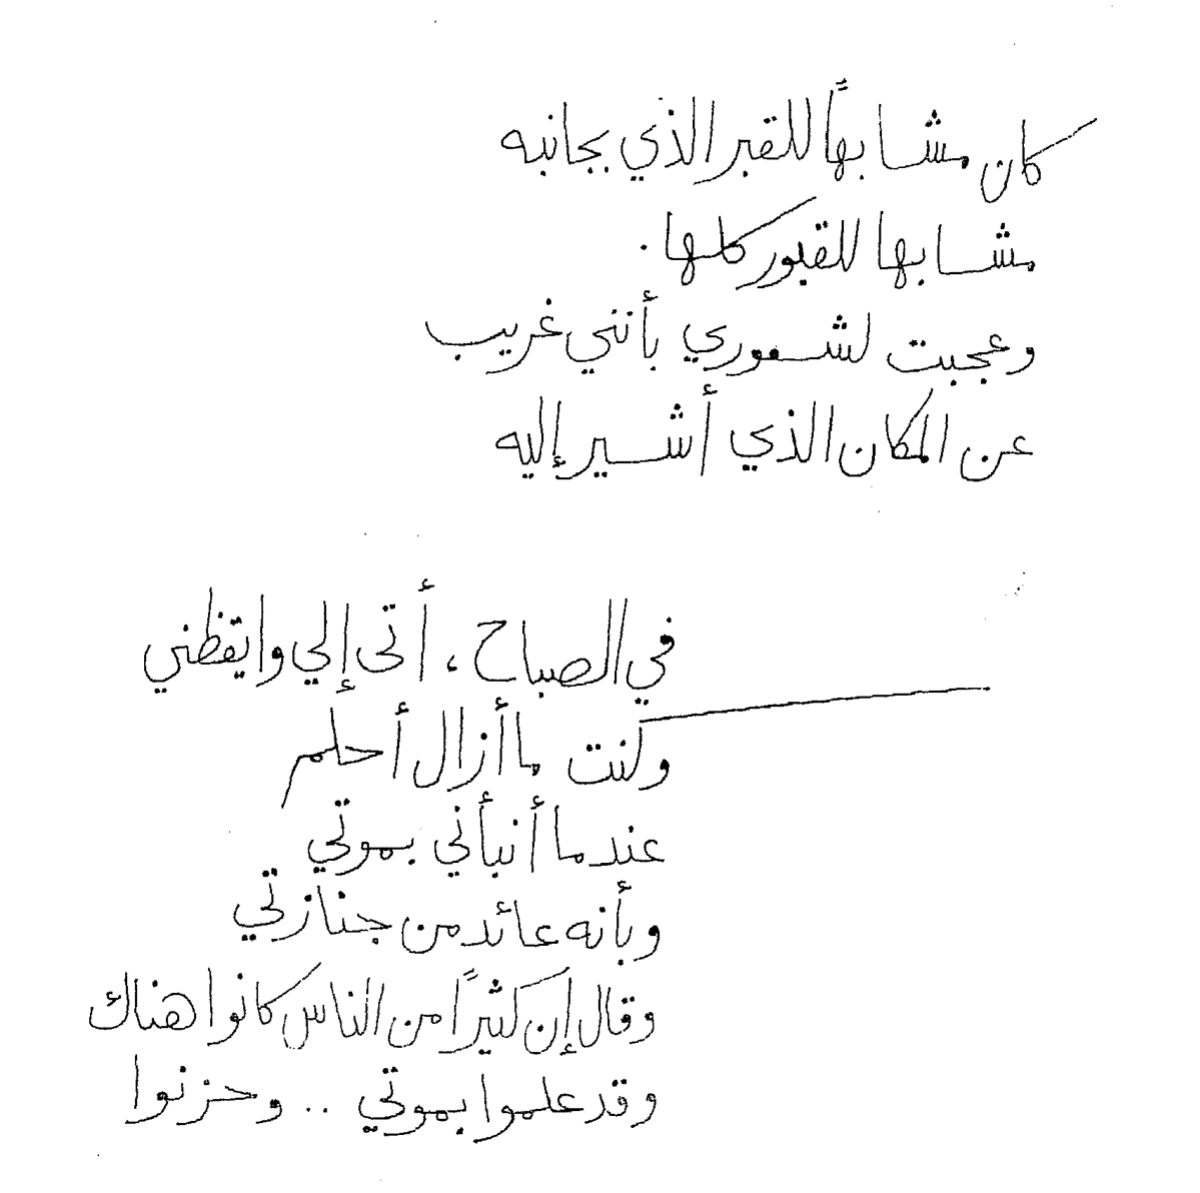 كان مشابهاً للقبر الذي بجانبه
مشابها للقبور كلها .
وعجبت لشعوري بأنني غريب
عن المكان الذي أشير إليه
في الصباح ، أتى إلي وايقظني
وكنت ما أزال أحلم
عندما أنبأني بموتي
وبأنه عائد من جنازتي
وقال إن كثيراً من الناس كانوا هناك
وقد علموا بموتي .. وحزنوا